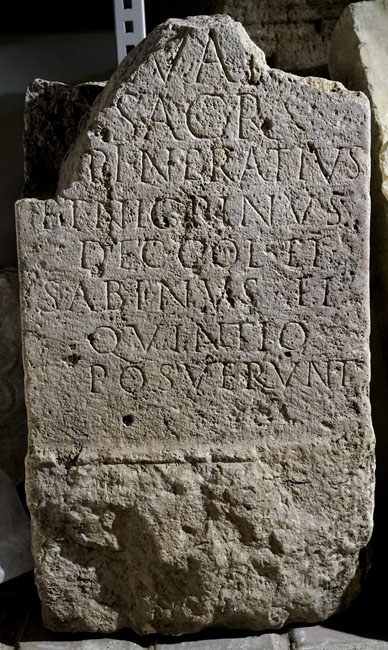 VA
SACR
PINERATIVS
ET NIGRINVS
DEC COL ET
SABINVS ET
QVINTIO
POSVERVNT